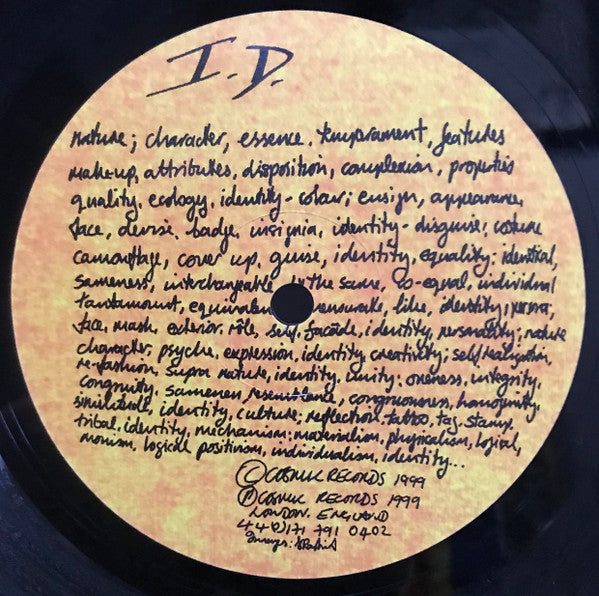 I.D.
nature; character, essence. temperament, features
make-up, attributes, disposition, complexion, properties
quality, ecology, identity - colour; ensign, appearance,
face, devise. badge, insignia, identity - disguise; costume
camouflage, cover up, guise, identity, equality; identical,
sameness, interchangeable the same, co-equal, individual
tantamount, equivalent like, identity; persona,
face, mask, exterior. rôle, self, facade, identity, personality; nature
character, psyche, expression, identity creativity; self/realization,
re-fashion, supra nature, identity, unity; oneness, integrity,
congruity, sameness, resemblance, congruousness, homogeneity,
similitude, identity, culture; reflection, tattoo, tag, stamp,
tribal, identity, mechanism; materialism, physicalism, logical,
monism, logical positivism, individualism, identity...
© COSMIC RECORDS 1999
℗ COSMIC RECORDS 1999
LONDON. ENGLAND
44(0)171 791 0402